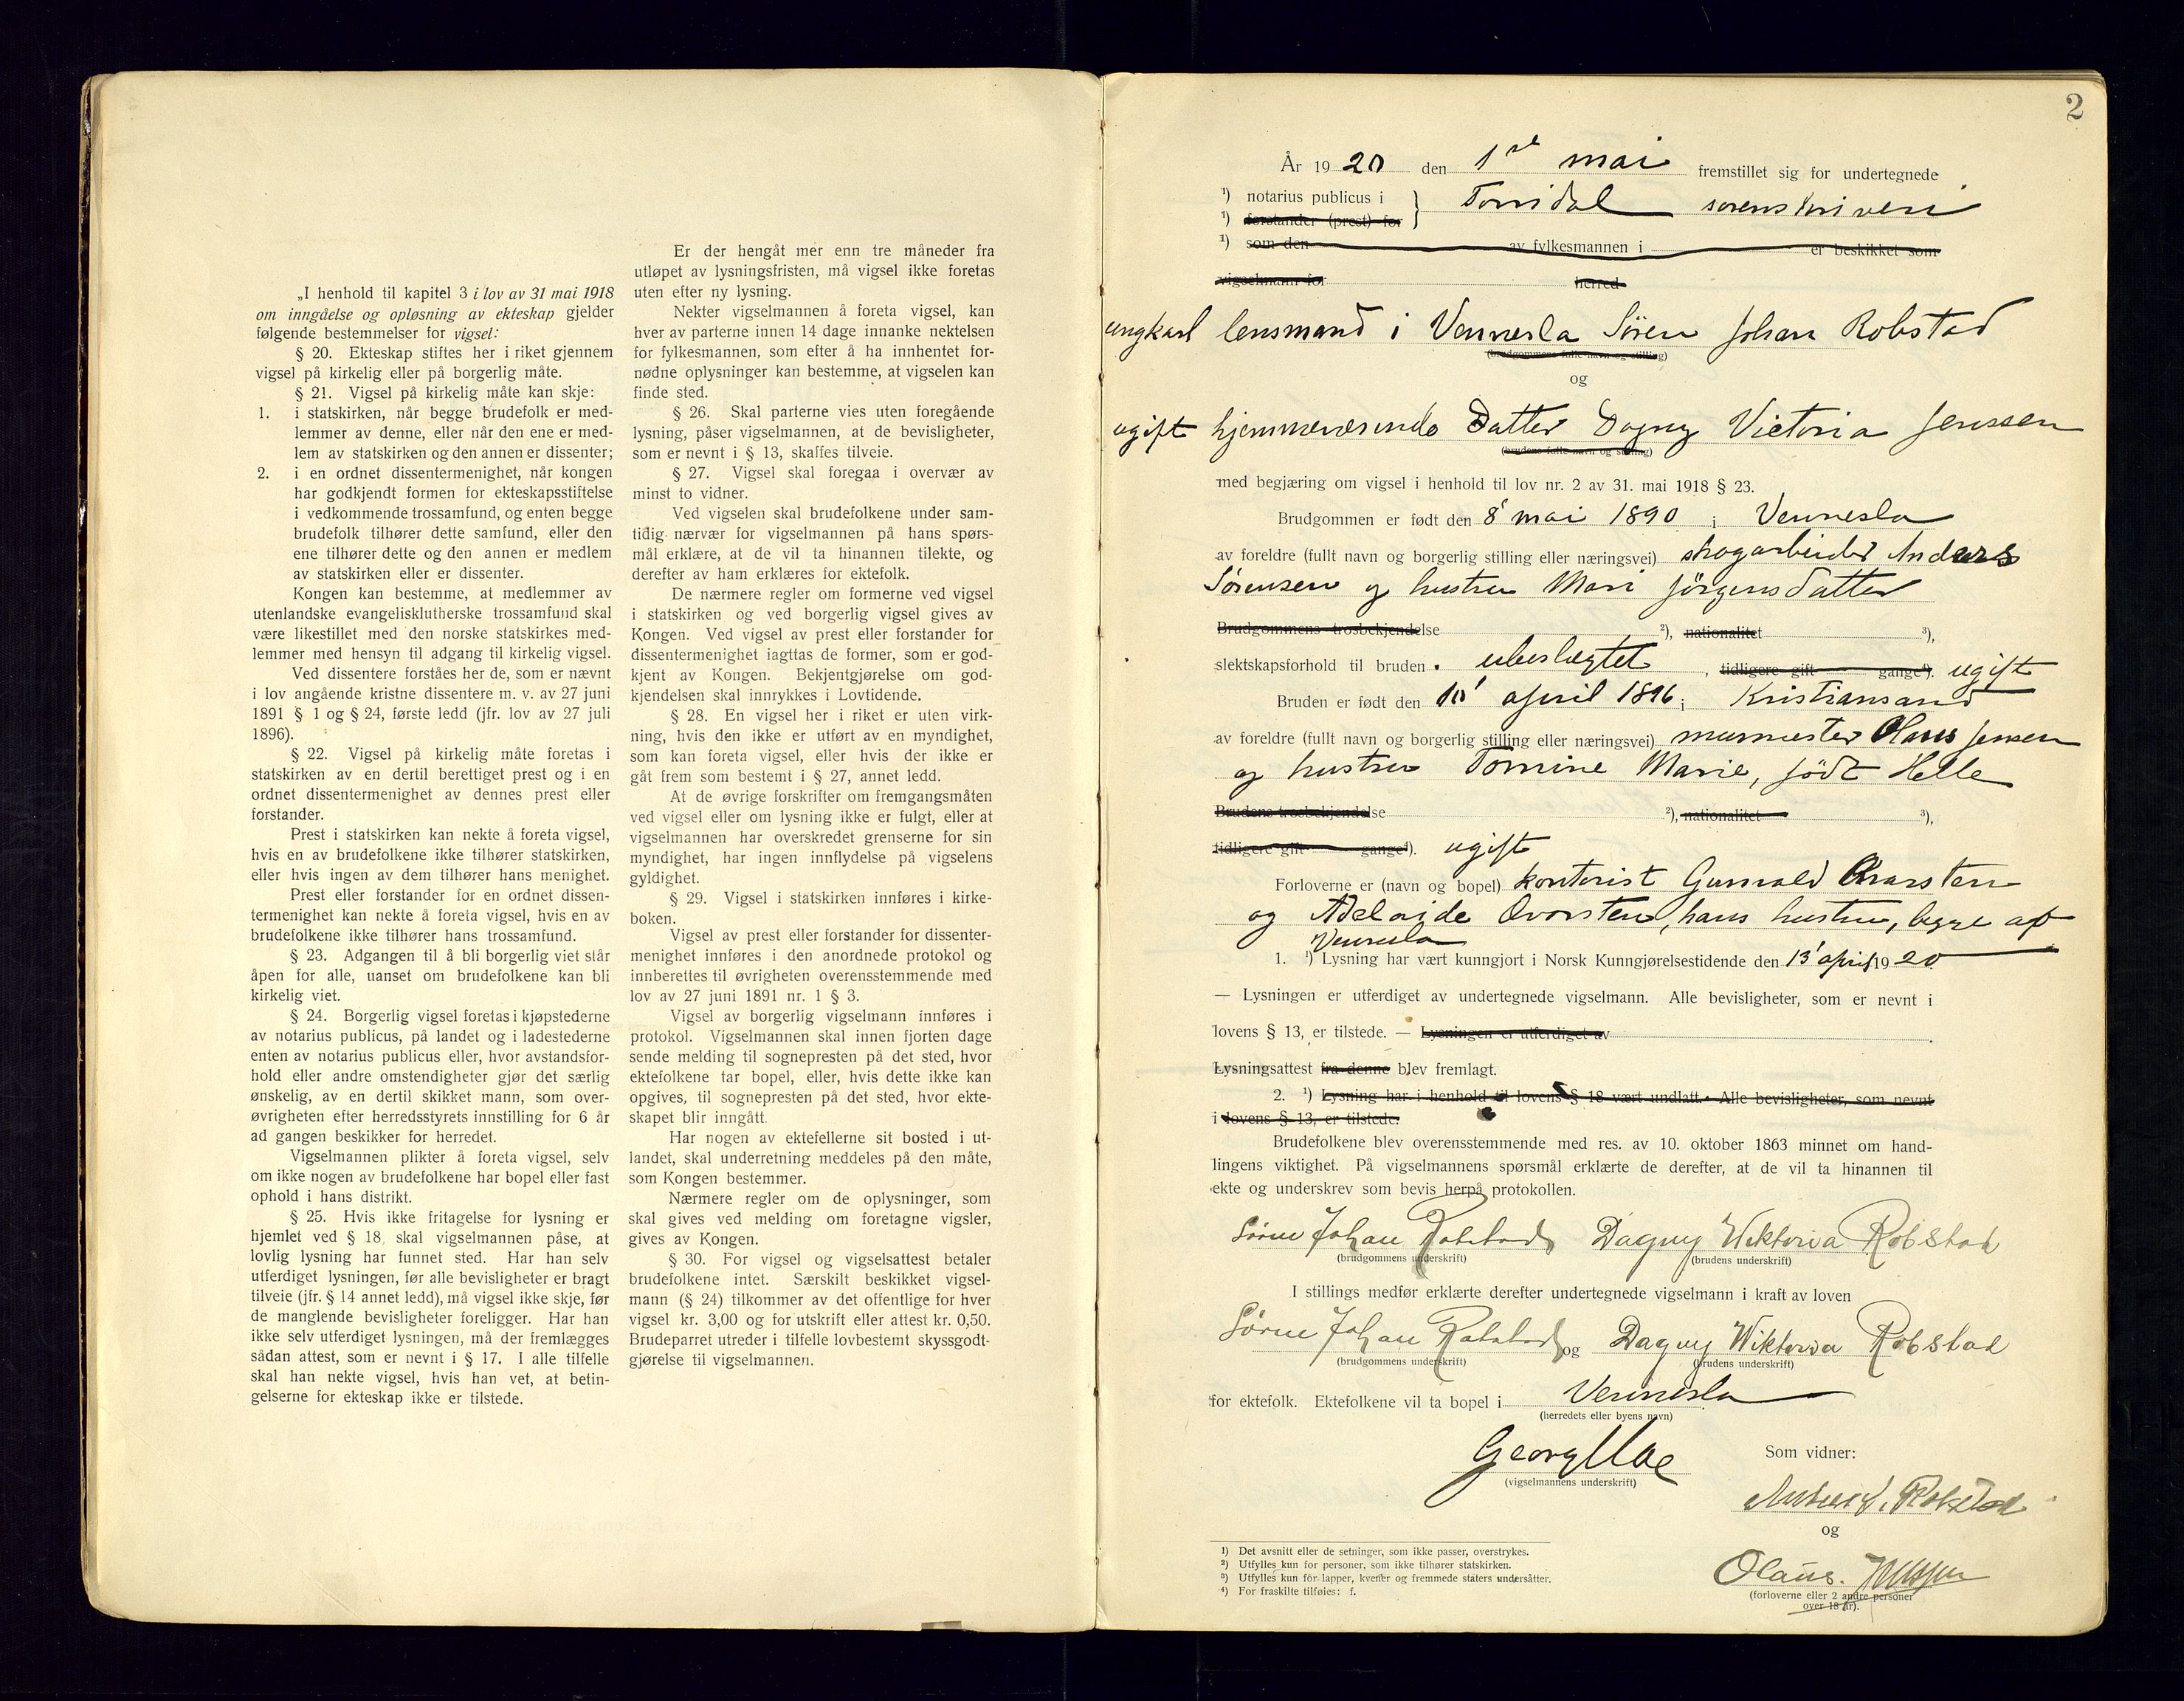 „I henhold til kapitel 3 i lov av 31 mai 1918
om inngåelse og opløsning av ekteskap gjelder
følgende bestemmelser for vigsel:
§ 20. Ekteskap stiftes her i riket gjennem
vigsel på kirkelig eller på borgerlig måte.
§ 21. Vigsel på kirkelig måte kan skje:
1. i statskirken, når begge brudefolk er med-
lemmer av denne, eller når den ene er med-
lem av statskirken og den annen er dissenter;
2. i en ordnet dissentermenighet, når kongen
har godkjendt formen for ekteskapsstiftelse
i vedkommende trossamfund, og enten begge
brudefolk tilhører dette samfund, eller den
ene tilhører dette og den annen er medlem
av statskirken eller er dissenter.
Kongen kan bestemme, at medlemmer av
utenlandske evangeliskluthersке trossamfund skal
være likestillet med den norske statskirkes med-
lemmer med hensyn til adgang til kirkelig vigsel.
Ved dissentere forståes her de, som er nævnt
i lov angående kristne dissentere m. v. av 27 juni
1891 § 1 og § 24, første ledd (jfr. lov av 27 juli
1896).
§ 22. Vigsel på kirkelig måte foretas i
statskirken av en dertil berettiget prest og i en
ordnet dissentermenighet av dennes prest eller
forstander.
Prest i statskirken kan nekte å foreta vigsel,
hvis en av brudefolkene ikke tilhører statskirken,
eller hvis ingen av dem tilhører hans menighet.
Prest eller forstander for en ordnet dissen-
termenighet kan nekte å foreta vigsel, hvis en av
brudefolkene ikke tilhører hans trossamfund.
§ 23. Adgangen til å bli borgerlig viet står
åpen for alle, uanset om brudefolkene kan bli
kirkelig viet.
§ 24. Borgerlig vigsel foretas i kjøpstederne
av notarius publicus, på landet og i ladestederne
enten av notarius publicus eller, hvor avstandsfor-
hold eller andre omstendigheter gjør det særlig
ønskelig, av en dertil skikket mann, som over-
øvrigheten efter herredsstyrets innstilling for 6 år
ad gangen beskikker for herredet.
Vigselmannen plikter å foreta vigsel, selv
om ikke nogen av brudefolkene har bopel eller fast
ophold i hans distrikt.
§ 25. Hvis ikke fritagelse for lysning er
hjemlet ved § 18, skal vigselmannen påse, at
lovlig lysning har funnet sted. Har han selv
utferdiget lysningen, før alle bevisligheter er bragt
tilveie (jfr. § 14 annet ledd), må vigsel ikke skje, før
de manglende bevisligheter foreligger. Har han
ikke selv utferdiget lysningen, må der fremlægges
sådan attest, som er nevnt i § 17. I alle tilfelle
skal han nekte vigsel, hvis han vet, at betin-
gelserne for ekteskap ikke er tilstede.
Er der hengåt mer enn tre måneder fra
utløpet av lysningsfristen, må vigsel ikke foretas
uten efter ny lysning.
Nekter vigselmannen å foreta vigsel, kan
hver av parterne innen 14 dage innanke nektelsen
for fylkesmannen, som efter å ha innhentet for-
nødne oplysninger kan bestemme, at vigselen kan
finde sted.
§ 26. Skal parterne vies uten foregående
lysning, påser vigselmannen, at de bevisligheter,
som er nevnt i § 13, skaffes tilveie.
§ 27. Vigsel skal foregaa i overvær av
minst to vidner.
Ved vigselen skal brudefolkene under sam-
tidig nærvær for vigselmannen på hans spørs-
mål erklære, at de vil ta hinannen tilekte, og
derefter av ham erklæres for ektefolk.
De nærmere regler om formerne ved vigsel
i statskirken og ved borgerlig vigsel gives av
Kongen. Ved vigsel av prest eller forstander for
dissentermenighet iagttas de former, som er god-
kjent av Kongen. Bekjentgjørelse om god-
kjendelsen skal innrykkes i Lovtidende.
§ 28. En vigsel her i riket er uten virk-
ning, hvis den ikke er utført av en myndighet,
som kan foreta vigsel, eller hvis der ikke er
gåt frem som bestemt i § 27, annet ledd.
At de øvrige forskrifter om fremgangsmåten
ved vigsel eller om lysning ikke er fulgt, eller at
vigselmannen har overskredet grenserne for sin
myndighet, har ingen innflydelse på vigselens
gyldighet.
§ 29. Vigsel i statskirken innføres i kirke-
boken.
Vigsel av prest eller forstander for dissenter-
menighet innføres i den anordnede protokol og
innberettes til øvrigheten overensstemmende med
lov av 27 juni 1891 nr. 1 § 3.
Vigsel av borgerlig vigselmann innføres i
protokol. Vigselmannen skal innen fjorten dage
sende melding til sognepresten på det sted, hvor
ektefolkene tar bopel, eller, hvis dette ikke kan
opgives, til sognepresten på det sted, hvor ekte-
skapet blir inngått.
Har nogen av ektefellerne sit bosted i ut-
landet, skal underretning meddeles på den måte,
som Kongen bestemmer.
Nærmere regler om de oplysninger, som
skal gives ved melding om foretagne vigsler,
gives av Kongen.
§ 30. For vigsel og vigselsattest betaler
brudefolkene intet. Særskilt beskikket vigsel-
mann (§ 24) tilkommer av det offentlige for hver
vigsel kr. 3,00 og for utskrift eller attest kr. 0,50.
Brudeparret utreder i tilfelle lovbestemt skyssgodt-
gjørelse til vigselmannen.
2
År 1920 den 1ste mai fremstillet sig for undertegnede
1) notarius publicus i } Torridal sorenskriveri
1) forstander (prest) for
1) som den av fylkesmannen i er beskikket som
vigselmann for herred
ungkarl lensmand i Vennesla Søren Johan Robstad
(brudgommens fulle navn og stilling)
og
ugift hjemmeværende Datter Dagny Victoria Jenssen
(brudens fulle navn og stilling)
med begjæring om vigsel i henhold til lov nr. 2 av 31. mai 1918 § 23.
Brudgommen er født den 8' mai 1890 i Vennesla
av foreldre (fullt navn og borgerlig stilling eller næringsvei) skogarbeider Anders
Sørensen og hustru Mari Jörgensdatter
Brudgommens trosbekjendelse 2), nationalitet 3),
slektskapsforhold til bruden. ubeslægtet, tidligere gift gange4). ugift
Bruden er født den 10' april 1896 i Kristiansand
av foreldre (fullt navn og borgerlig stilling eller næringsvei) murmester Olaus Jensen
og hustru Tomine Marie, født Helle
Brudens trosbekjendelse 2), nationalitet 3),
tidligere gift gange4). ugift
Forloverne er (navn og bopel) kontorist Gunvald Qvarsten
og Adelaide Qvarsten, hans hustru, begge af
Vennesla
1. 1) Lysning har vært kunngjort i Norsk Kunngjørelsestidende den 13' april 1920
— Lysningen er utferdiget av undertegnede vigselmann. Alle bevisligheter, som er nevnt i
lovens § 13, er tilstede. — Lysningen er utferdiget av
Lysningsattest fra denne blev fremlagt.
2. 1) Lysning har i henhold til lovens § 18 vært undlatt. Alle bevisligheter, som nevnt
i lovens § 13, er tilstede.
Brudefolkene blev overensstemmende med res. av 10. oktober 1863 minnet om hand-
lingens viktighet. På vigselmannens spørsmål erklærte de derefter, at de vil ta hinannen til
ekte og underskrev som bevis herpå protokollen.
Søren Johan Robstad Dagny Wiktoria Robstad
(brudgommens underskrift) (brudens underskrift)
I stillings medfør erklærte derefter undertegnede vigselmann i kraft av loven
Søren Johan Robstad og Dagny Wiktoria Robstad
(brudgommens underskrift) (brudens underskrift)
for ektefolk. Ektefolkene vil ta bopel i Vennesla
(herredets eller byens navn)
Georg Moe
(vigselmannens underskrift)
Som vidner:
Robstad
og
Olaus. Jenssen
(forloverne eller 2 andre personer
over 18 år).
1) Det avsnitt eller de setninger, som ikke passer, overstrykes.
2) Utfylles kun for personer, som ikke tilhører statskirken.
3) Utfylles kun for lapper, kvener og fremmede staters undersåtter.
4) For fraskilte tilføies: f.